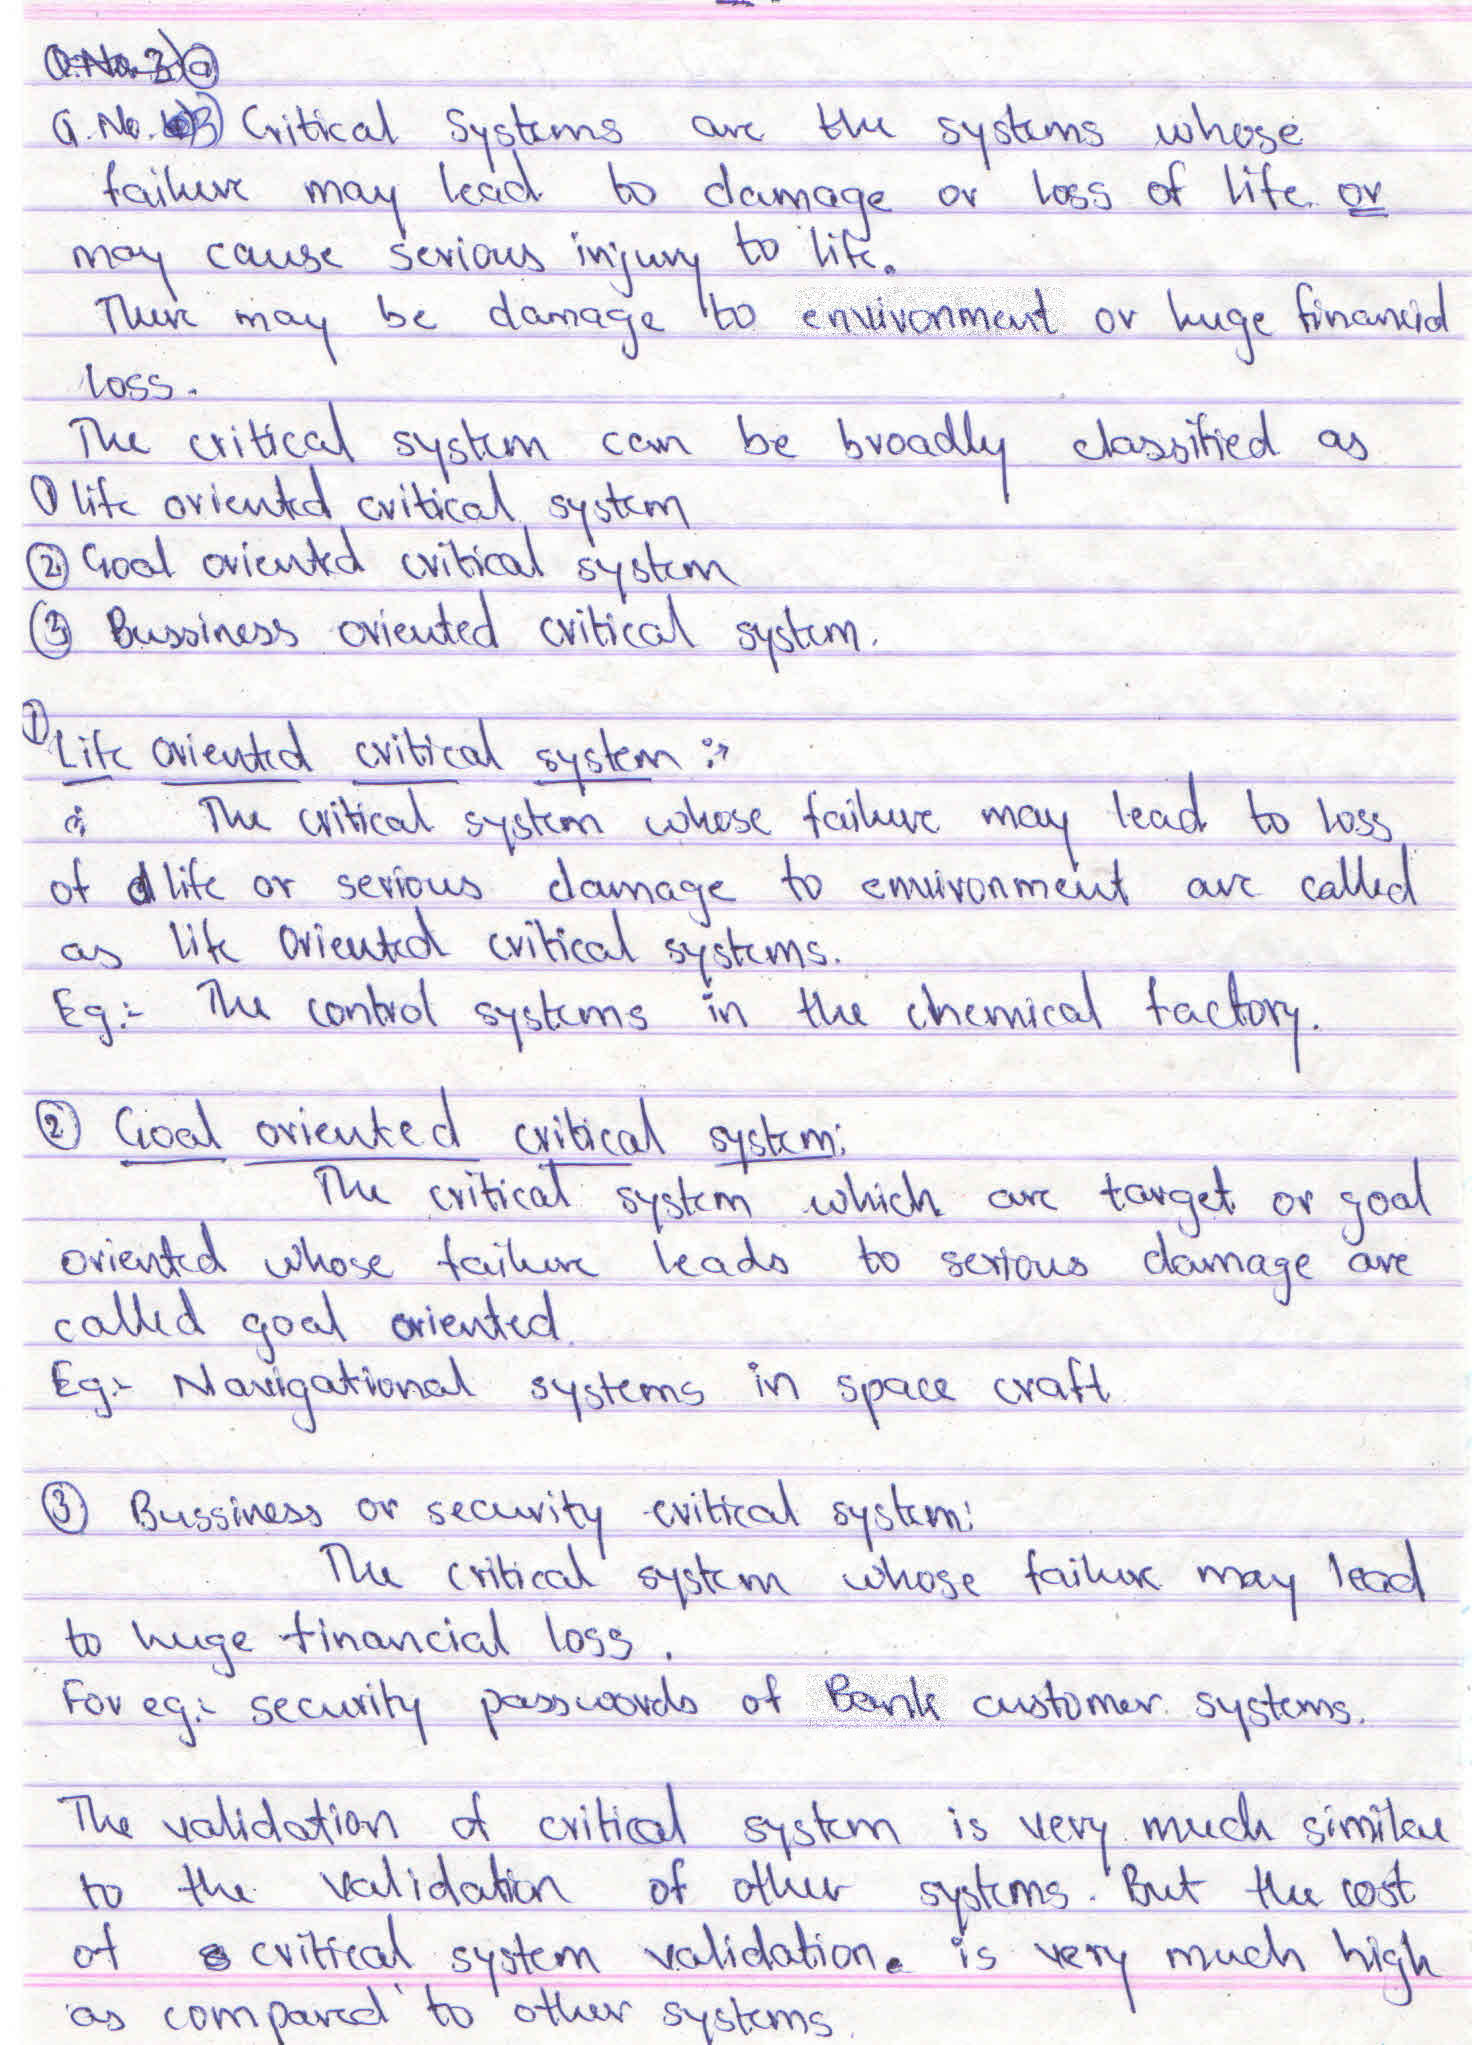 Q.No. 3) a
Q.No. 3) Critical Systems are the systems whose
failure may lead to damage or loss of life or
may cause serious injury to life.
There may be damage to environment or huge financial
loss.
The critical system can be broadly classified as
① life oriented critical system
② Goal oriented critical system
③ Bussiness oriented critical system.
① Life oriented critical system :→
The critical system whose failure may lead to loss
of life or serious damage to environment are called
as life oriented critical systems.
Eg:- The control systems in the chemical factory.
② Goal oriented critical system:
The critical system which are target or goal
oriented whose failure leads to serious damage are
called goal oriented
Eg:- Navigational systems in space craft
③ Bussiness or security critical system:
The critical system whose failure may lead
to huge financial loss.
For eg:- security passwords of Bank customer systems.
The validation of critical system is very much similar
to the validation of other systems. But the cost
of critical system validation. is very much high
as compared to other systems.